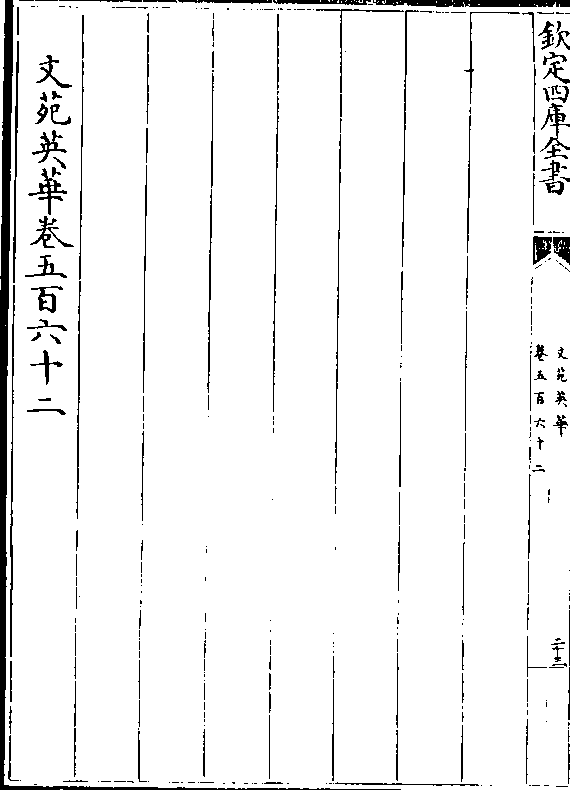 欽定四庫全書
文苑英華
卷五百六十二
二十三
文苑英華卷五百六十二